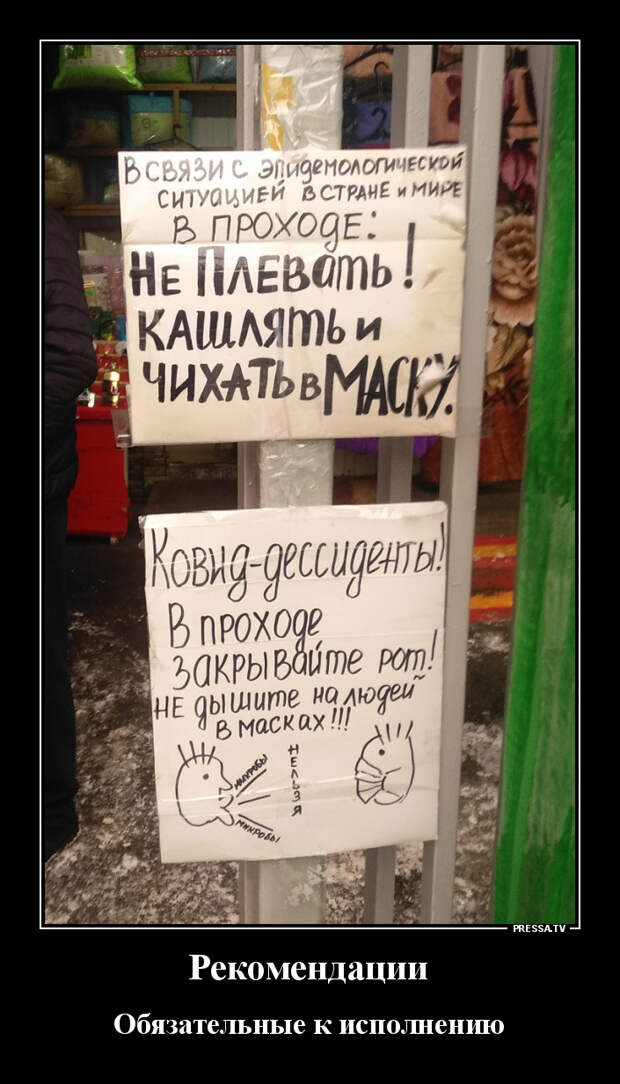 В СВЯЗИ С ЭПИДЕМОЛОГИЧЕСКОЙ
СИТУАЦИЕЙ В СТРАНЕ И МИРЕ
В ПРОХОДЕ:
НЕ ПЛЕВАТЬ!
КАШЛЯТЬ И
ЧИХАТЬ В МАСКУ.
Ковид-дессиденты!
В проходе
закрывайте рот!
НЕ дышите на людей
в масках!!!
МИКРОБЫ
НЕЛЬЗЯ
МИКРОБЫ
PRESSA.TV
Рекомендации
Обязательные к исполнению